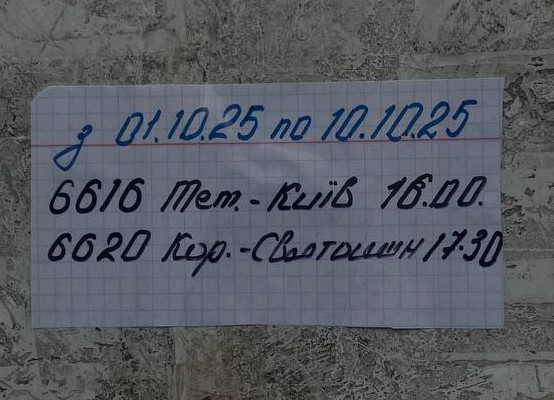 з 01.10.25 по 10.10.25
6616 Тет.-Київ 16.00.
6620 Кор.-Святошин 17-30